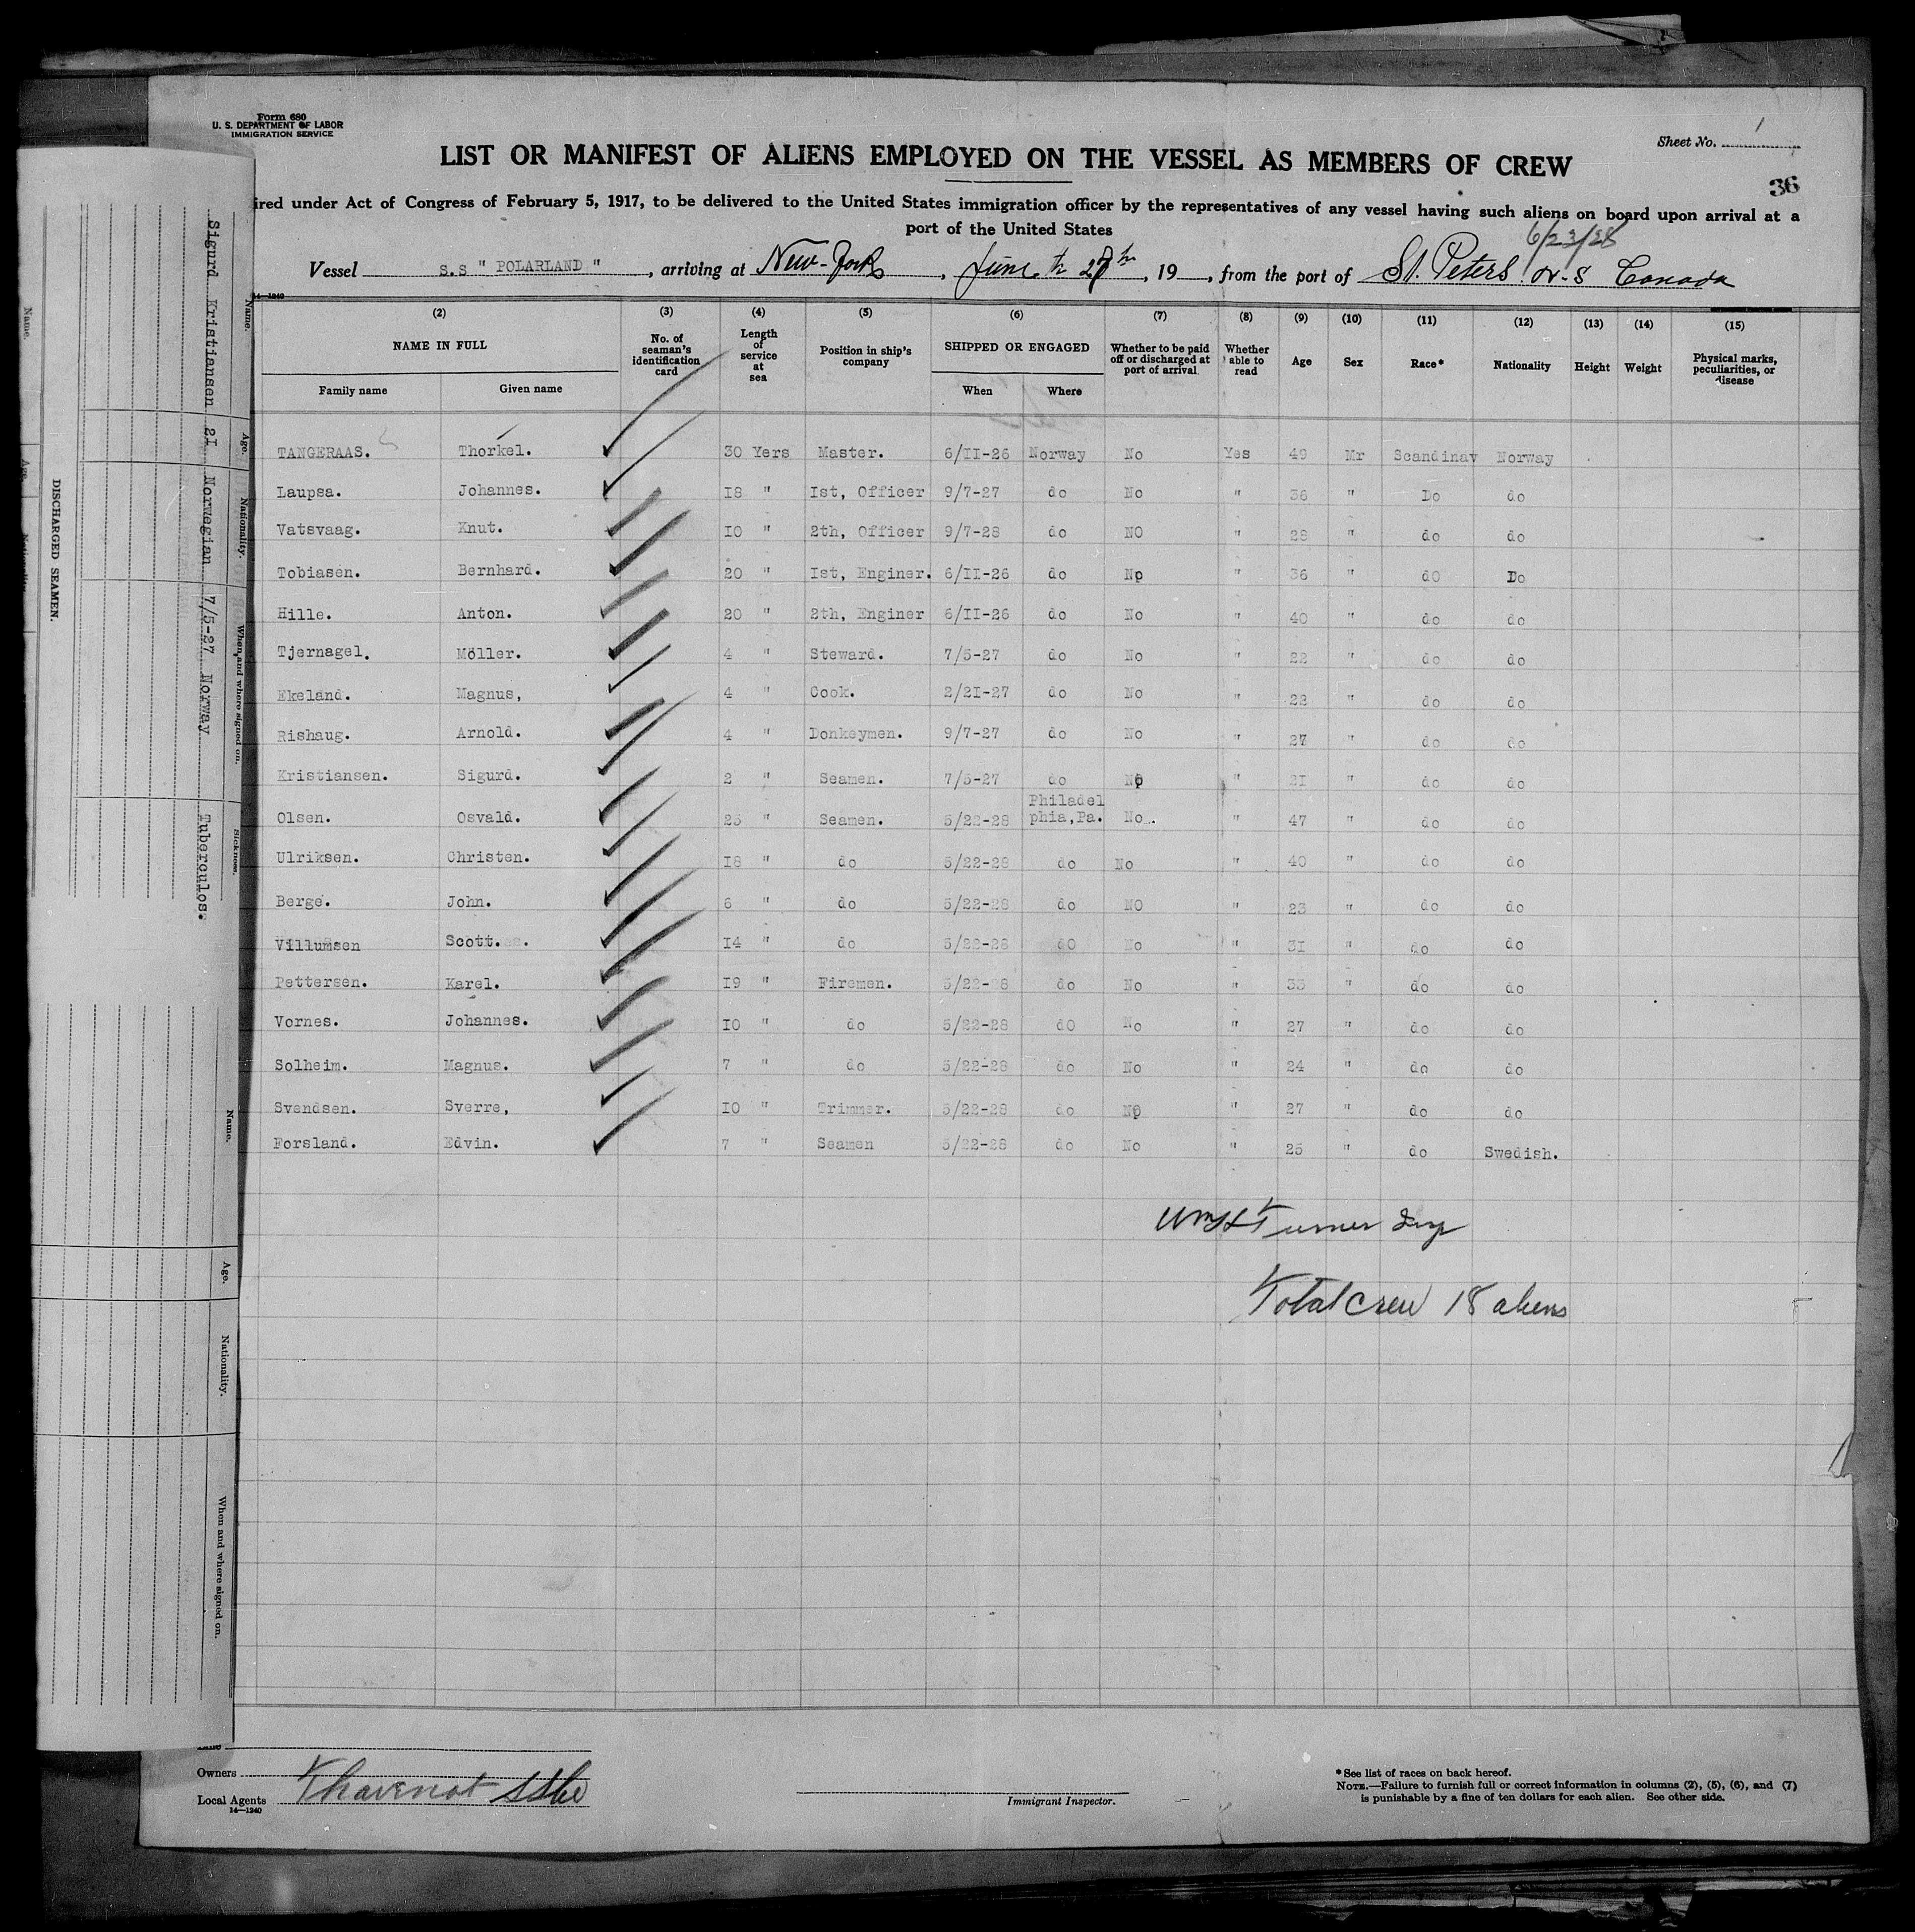 Form 680
U. S. DEPARTMENT OF LABOR
IMMIGRATION SERVICE
Sheet No. 1
LIST OR MANIFEST OF ALIENS EMPLOYED ON THE VESSEL AS MEMBERS OF CREW
36
ired under Act of Congress of February 5, 1917, to be delivered to the United States immigration officer by the representatives of any vessel having such aliens on board upon arrival at a
port of the United States
6/23/28
Vessel S.S " POLARLAND ", arriving at New-York, June th 27th, 19 , from the port of St. Peters. N-S Canada
14—1240
(2) (3) (4) (5) (6) (7) (8) (9) (10) (11) (12) (13) (14) (15)
NAME IN FULL No. of seaman's identification card Length of service at sea Position in ship's company SHIPPED OR ENGAGED Whether to be paid off or discharged at port of arrival Whether able to read Age Sex Race* Nationality Height Weight Physical marks, peculiarities, or disease
Family name Given name When Where
TANGERAAS. Thorkel. 30 Yers Master. 6/II-26 Norway No Yes 49 Mr Scandinav Norway
Laupsa. Johannes. I8 " Ist, Officer 9/7-27 do No " 36 " Do do
Vatsvaag. Knut. IO " 2th, Officer 9/7-28 do NO " 28 " do do
Tobiasen. Bernhard. 20 " Ist, Enginer. 6/II-26 do No " 36 " dO Do
Hille. Anton. 20 " 2th, Enginer 6/II-26 do No " 40 " do do
Tjernagel. Möller. 4 " Steward. 7/5-27 do No " 22 " do do
Ekeland. Magnus, 4 " Cook. 2/2I-27 do No " 22 " do do
Rishaug. Arnold. 4 " Donkeymen. 9/7-27 do No " 27 " do do
Kristiansen. Sigurd. 2 " Seamen. 7/5-27 do No " 2I " do do
Olsen. Osvald. 25 " Seamen. 5/22-28 Philadel phia,Pa. No. " 47 " do do
Ulriksen. Christen. I8 " do 5/22-28 do No " 40 " do do
Berge. John. 6 " do 5/22-28 do NO " 23 " do do
Villumsen Scott. I4 " do 5/22-28 dO No " 3I " do do
Pettersen. Karel. I9 " Firemen. 5/22-28 do No " 33 " do do
Vornes. Johannes. IO " do 5/22-28 dO No " 27 " do do
Solheim. Magnus. 7 " do 5/22-28 do No " 24 " do do
Svendsen. Sverre, IO " Trimmer. 5/22-28 do No " 27 " do do
Forsland. Edvin. 7 " Seamen 5/22-28 do No " 25 " do Swedish.
Turner Insp
Total crew 18 aliens
Owners
Local Agents
14—1240
Immigrant Inspector.
* See list of races on back hereof.
NOTE.—Failure to furnish full or correct information in columns (2), (5), (6), and (7)
is punishable by a fine of ten dollars for each alien. See other side.
DISCHARGED SEAMEN.
Name. Age. Nationality. When and where signed on. Sickness.
Sigurd Kristiansen 2I Norwegian 7/5-27 Norway Tuberculos.
Name. Age. Nationality. When and where signed on.